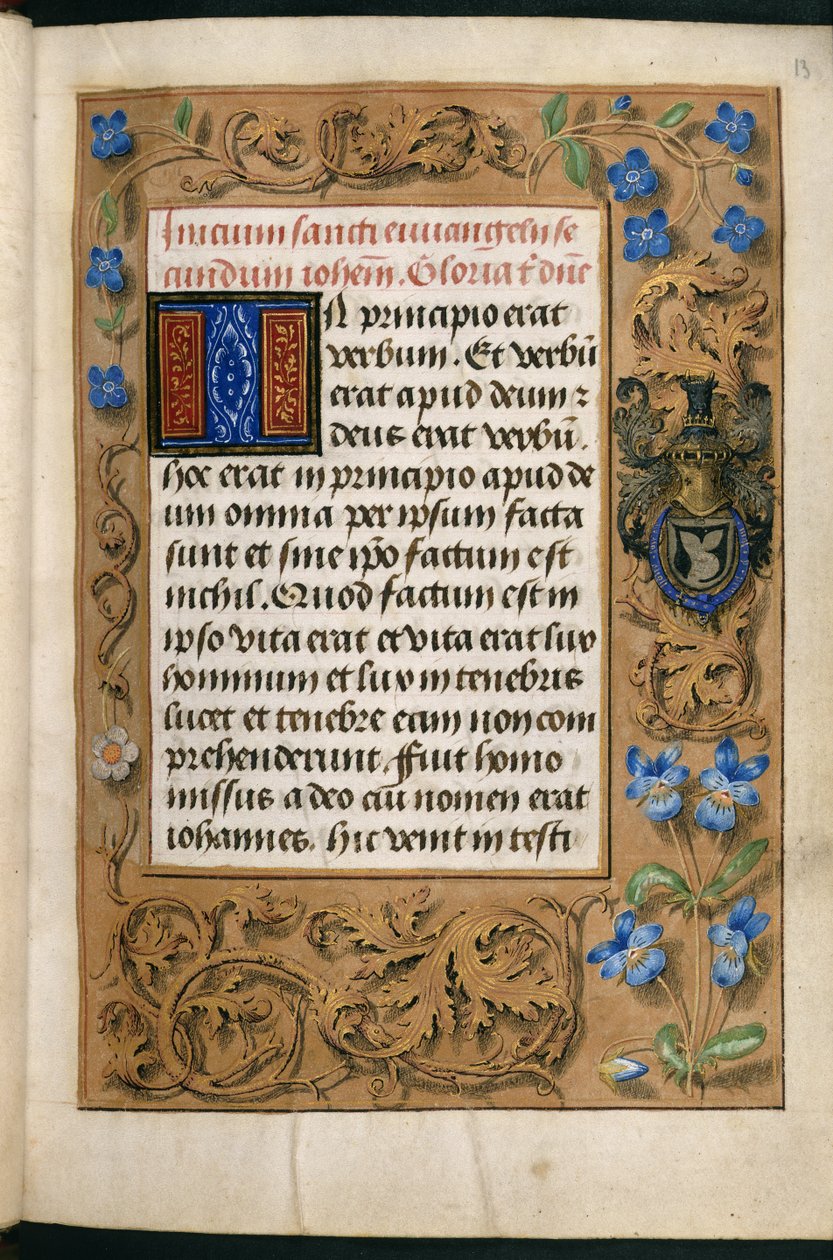 13
Inicium sancti euuangelii se
cundum iohem̄. Gloria t̄ dn̄e
IN principio erat
verbum. Et verbū
erat apud deum ⁊
deus erat verbū.
hoc erat in principio apud de
um omnia per ipsum facta
sunt et sine ip̄o factum est
nichil. Quod factum est in
ipso vita erat et vita erat lux
hominum et lux in tenebris
lucet et tenebre eam non com
prehenderunt. Ffuit homo
missus a deo cui nomen erat
iohannes. hic venit in testi